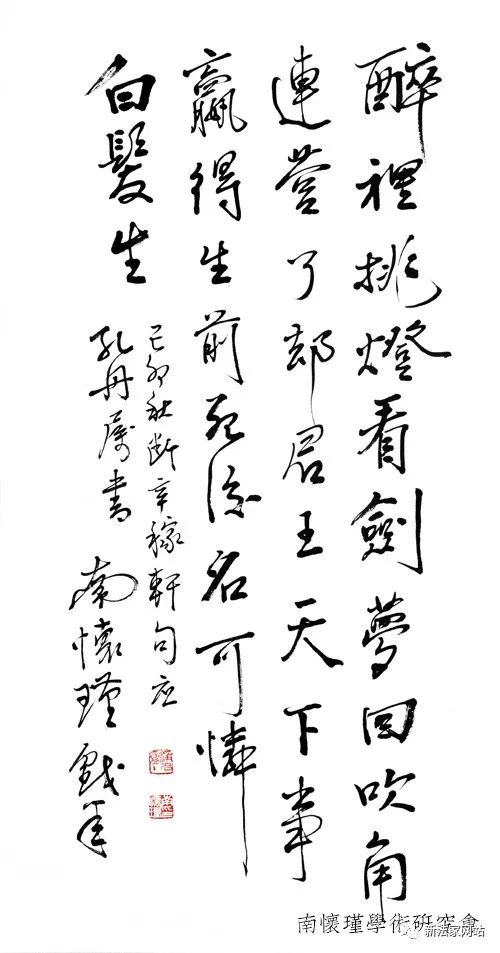 醉裡挑燈看劍夢回吹角
連營了却君王天下事
贏得生前死後名可憐
白髮生
己卯秋断辛稼軒句应
孔丹属書 南懷瑾戲筆
南懷瑾學術研究會
新法家网站